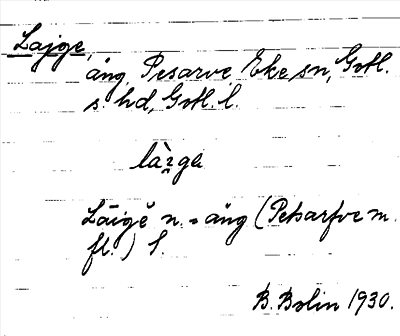 Lajge,
äng, Pesarve, Eke sn, Gotl.
s. hd, Gotl. l.
làɪ̯ga
Läigĕ n. = äng (Petsarfve m.
fl.) S.
B. Bolin 1930.